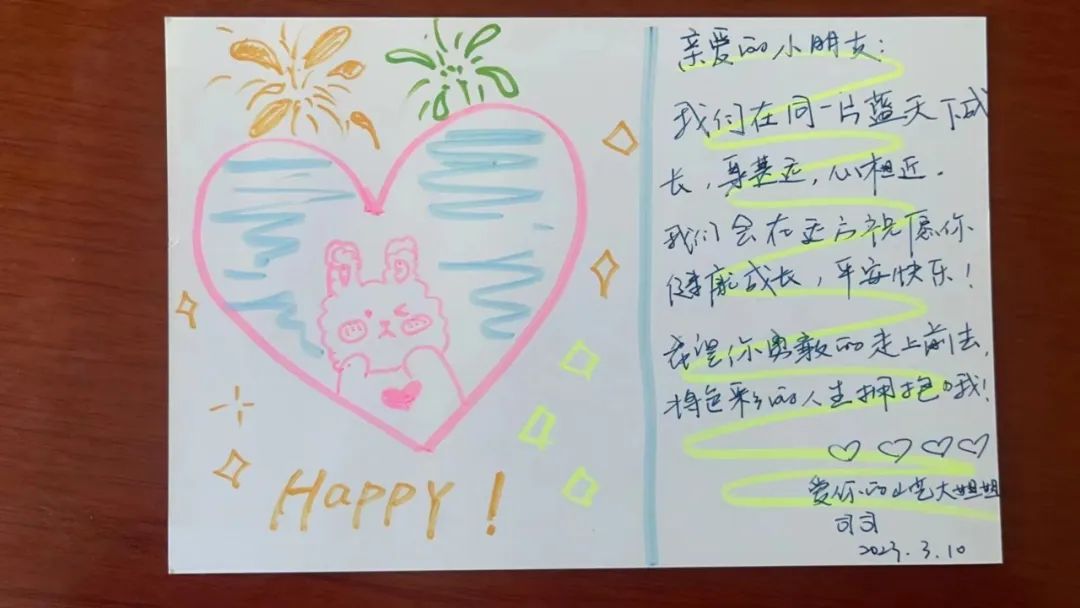 Happy!
亲爱的小朋友:
我们在同一片蓝天下成
长,虽甚远,心相近.
我们会在远方祝愿你
健康成长,平安快乐!
希望你勇敢的走上前去,
将色彩的人生拥抱哦!
爱你的山艺大姐姐
2023.3.10